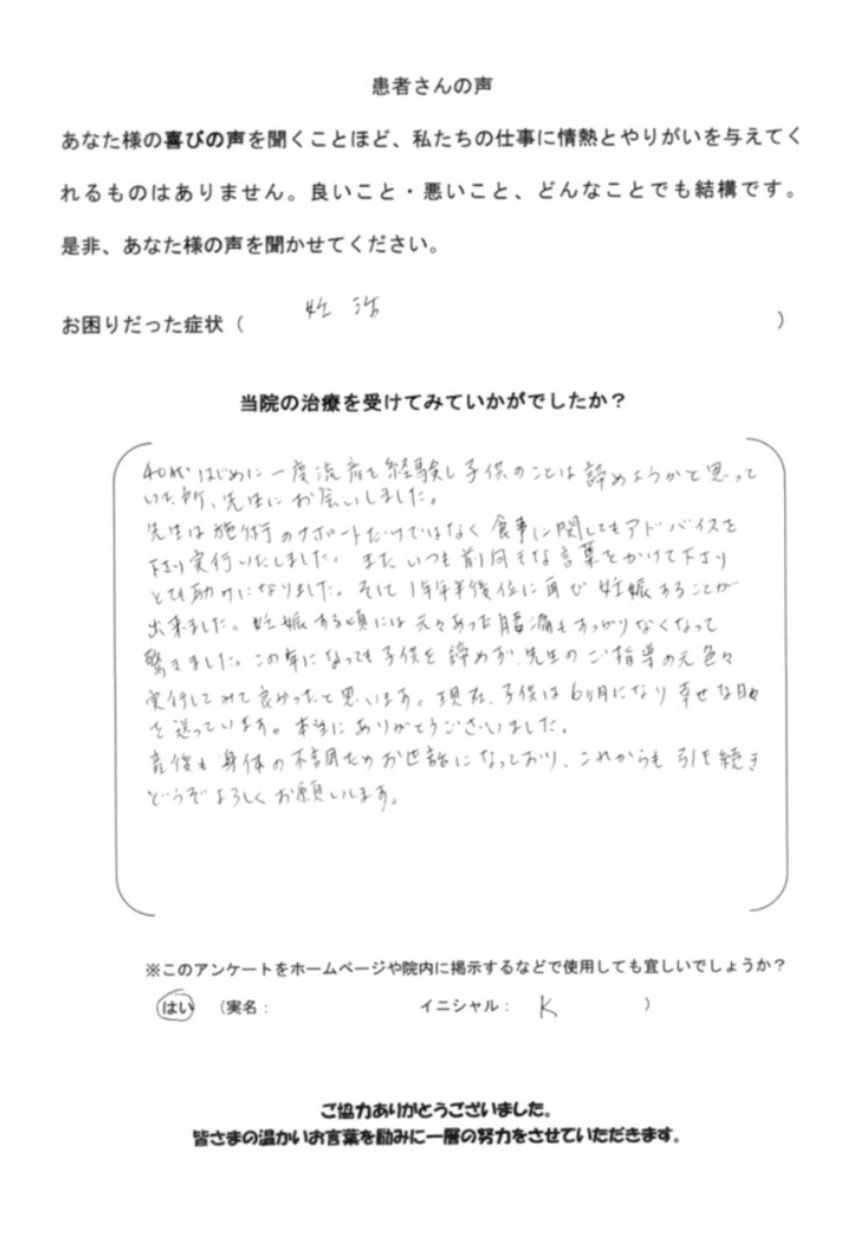 患者さんの声
あなた様の喜びの声を聞くことほど、私たちの仕事に情熱とやりがいを与えてく
れるものはありません。良いこと・悪いこと、どんなことでも結構です。
是非、あなた様の声を聞かせてください。
お困りだった症状（ 妊活 ）
当院の治療を受けてみていかがでしたか？
40代はじめに一度流産を経験し子供のことは諦めようかと思って
いた所、先生にお会いしました。
先生は施術のサポートだけではなく食事に関してもアドバイスを
下さり実行いたしました。また いつも前向きな言葉をかけて下さり
とても励みになりました。そして1年半後位に再び妊娠することが
出来ました。妊娠する頃には元々あった腰痛もすっかりなくなって
驚きました。この年になっても子供を諦めず、先生のご指導の元色々
実行してみて良かったと思います。現在、子供は6ヶ月になり幸せな日々
を送っています。本当にありがとうございました。
産後も身体の不調のためお世話になっており、これからも引き続き
どうぞよろしくお願いします。
※このアンケートをホームページや院内に掲示するなどで使用しても宜しいでしょうか？
はい （実名： イニシャル： K ）
ご協力ありがとうございました。
皆さまの温かいお言葉を励みに一層の努力をさせていただきます。